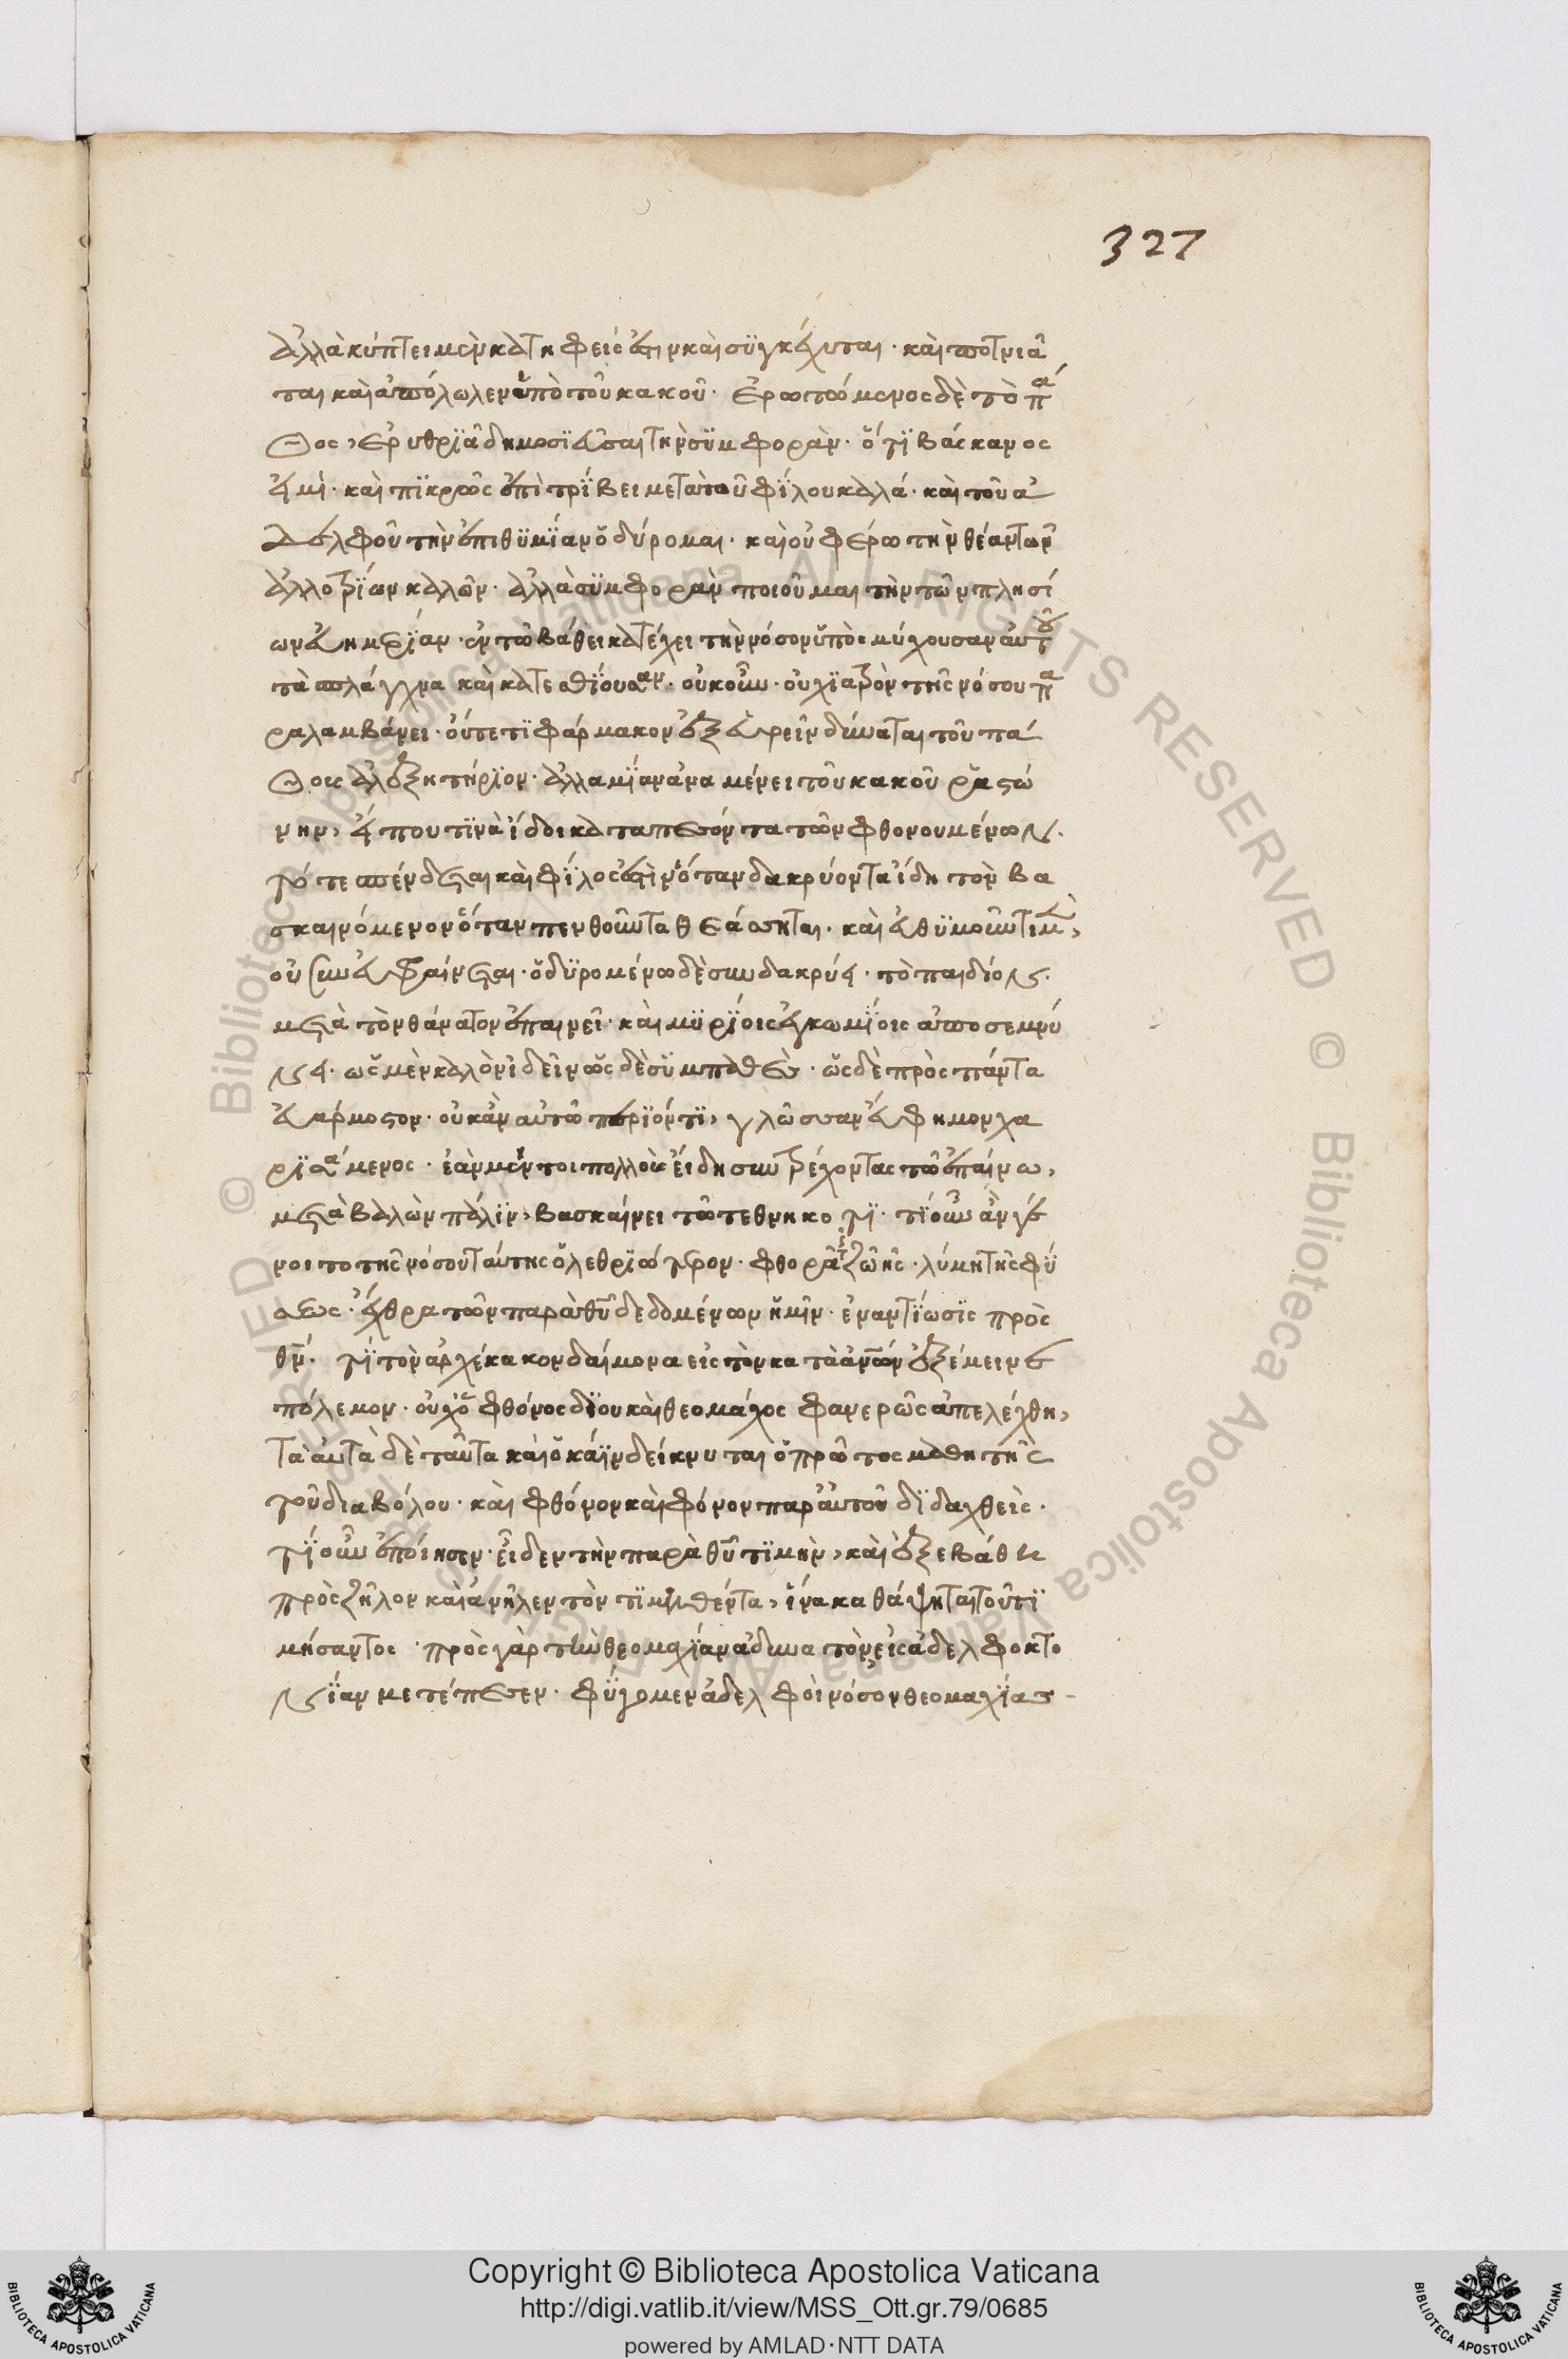 327
ἀλλὰ κύπτει μὲν κατηφεῖ ἐστιν καὶ συγκέχυται · καὶ ποτνιᾶ
ται καὶ ἀπόλωλεν ὑπὸ τοῦ κακοῦ · ἐρωτώμενος δὲ τὸ πά
θος, ἐρυθριᾷ δημοσιεῦσαι τὴν συμφορὰν · ὅτι βάσκανος
εἰμὶ · καὶ πικρῶς ἐπιτρίβει με τὰ τοῦ φίλου καλά · καὶ τοῦ ἀ
δελφοῦ τὴν ἐπιθυμίαν ὀδύρομαι · καὶ οὐ φέρω τὴν θέαν τῶν
ἀλλοτρίων καλῶν · ἀλλὰ συμφορὰν ποιοῦμαι τὴν τῶν πλησί
ων εὐημερίαν · ἐν τῷ βάθει κατέχει τὴν νόσον ὑποσμύχουσαν αὐτοῦ
τὰ σπλάγχνα καὶ κατεσθίουσαν · οὐκοῦν · οὐχ ἰατρὸν τῆς νόσου πα
ραλαμβάνει · οὔτε τι φάρμακον ἐξευρεῖν δύναται τοῦ πά
θους ἀλεξητήριον · ἀλλα μίαν ἀναμένει τοῦ κακοῦ ῥαστώ
νην, εἴ που τινὰ ἴδοι καταπεσόντα τῶν φθονουμένων ·
τότε σπένδεται καὶ φίλος ἐστὶν ὅταν δακρύοντα ἴδη τὸν βα
σκαινόμενον ὅταν πενθοῦντα θεάσηται · καὶ εὐθυμοῦντι μὲν,
οὐ συνευφραίνεται · ὀδυρομένω δὲ συνδακρύει · τὸ παιδίον ·
μετὰ τὸν θάνατον ἐπαινεῖ · καὶ μυρίοις ἐγκωμίοις ἀποσεμνύ
νει · ὡς μὲν καλὸν ἰδεῖν ὡς δὲ συμπαθὲς · ὡς δὲ πρὸς πάντα
εὐάρμοστον · οὐκ ἂν αὐτῷ περιόντι, γλῶσσαν εὔφημον χα
ρισάμενος · ἐὰν μέντοι πολλοὺς εἴδη συντρέχοντας τῷ ἐπαίνω,
μεταβαλὼν πάλιν, βασκαίνει τῷ τεθνηκότι · τί οὖν ἂν γέ
νοιτο τῆς νόσου ταύτης ὀλεθριώτερον · φθορὰ τῆς ζωῆς · λύμη τῆς φύ
σεως · ἔχθρα τῶν παρὰ θῦ δεδομένων ἡμῖν · ἐναντίωσις πρὸς
θν · τί τὸν ἀρχέκακον δαίμονα εἰς τὸν κατὰ ἀνῶν ἐξέμεινε
πόλεμον · οὐχ ὁ φθόνος δι οὗ καὶ θεομάχος φανερῶς ἀπελέγχθη,
τὰ αὐτὰ δὲ ταῦτα καὶ ὁ κάϊν δείκνυται ὁ πρῶτος μαθητὴς
τοῦ διαβόλου · καὶ φθόνον καὶ φόνον παρ αὐτοῦ διδαχθεὶς ·
τί οὖν ἐποίησεν · εἶδεν τὴν παρὰ θῦ τιμὴν, καὶ ἐξεβάθη
πρὸς ζῆλον καὶ ἀνῆλεν τὸν τιμηθέντα, ἵνα καθάψηται τοῦ τι
μήσαντος · πρὸς γὰρ τὴν θεομαχίαν ἀδυνατὸν εἰς ἀδελφοκτο
νίαν μετέπεσεν · φύγομεν ἀδελφοὶ νόσον θεομαχίας -
Copyright © Biblioteca Apostolica Vaticana
http://digi.vatlib.it/view/MSS_Ott.gr.79/0685
powered by AMLAD·NTT DATA